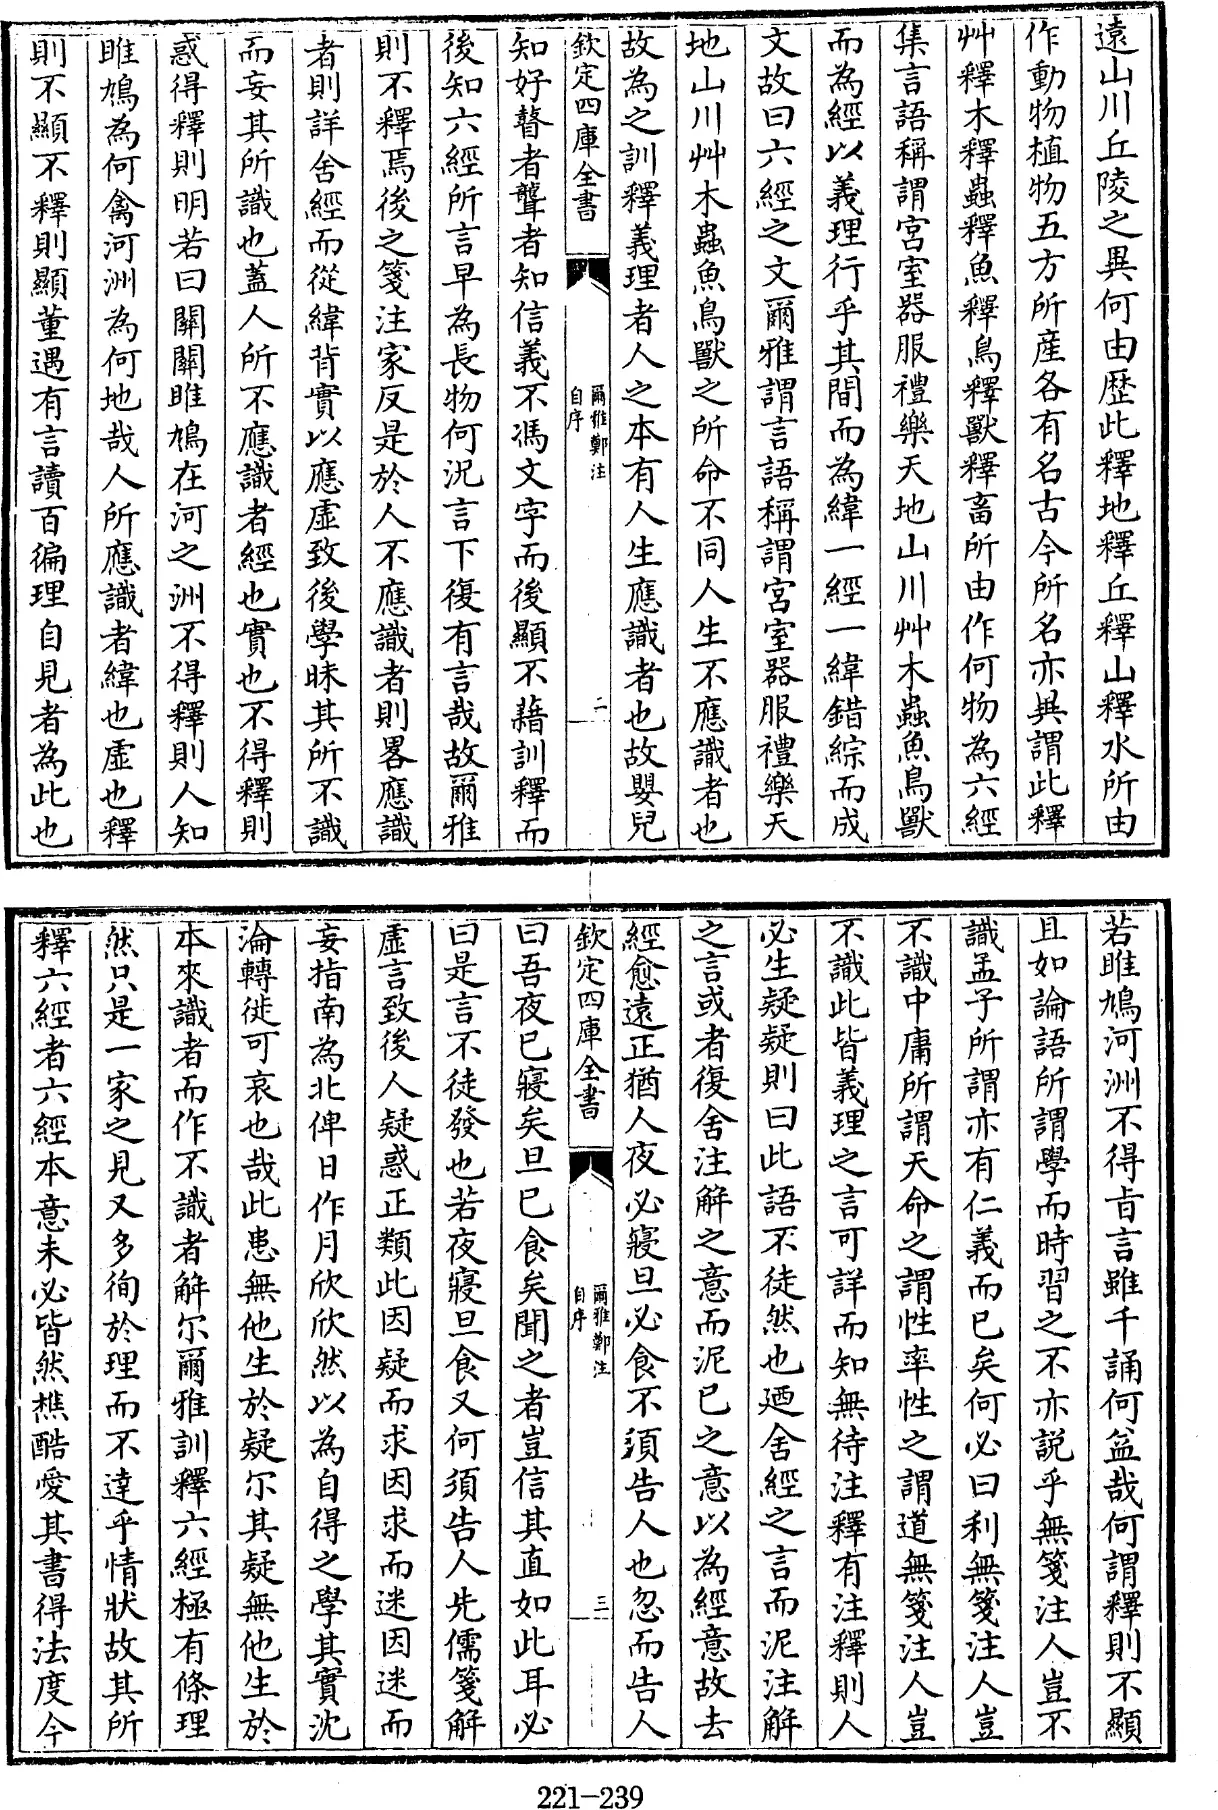 遠山川丘陵之異何由歴此釋地釋丘釋山釋水所由
作動物植物五方所産各有名古今所名亦異謂此釋
艸釋木釋蟲釋魚釋鳥釋獸釋畜所由作何物為六經
集言語稱謂宮室器服禮樂天地山川艸木蟲魚鳥獸
而為經以義理行乎其間而為緯一經一緯錯綜而成
文故曰六經之文爾雅謂言語稱謂宮室器服禮樂天
地山川艸木蟲魚鳥獸之所命不同人生不應識者也
故為之訓釋義理者人之本有人生應識者也故嬰兒
欽定四庫全書
爾雅鄭注
自序
二
知好瞽者聾者知信義不馮文字而後顯不藉訓釋而
後知六經所言早為長物何況言下復有言哉故爾雅
則不釋焉後之箋注家反是於人不應識者則畧應識
者則詳舍經而從緯背實以應虛致後學昧其所不識
而妄其所識也蓋人所不應識者經也實也不得釋則
惑得釋則明若曰關關雎鳩在河之洲不得釋則人知
雎鳩為何禽河洲為何地哉人所應識者緯也虛也釋
則不顯不釋則顯董遇有言讀百徧理自見者為此也
若雎鳩河洲不得旨言雖千誦何益哉何謂釋則不顯
且如論語所謂學而時習之不亦說乎無箋注人豈不
識孟子所謂亦有仁義而已矣何必曰利無箋注人豈
不識中庸所謂天命之謂性率性之謂道無箋注人豈
不識此皆義理之言可詳而知無待注釋有注釋則人
必生疑疑則曰此語不徒然也廼舍經之言而泥注解
之言或者復舍注解之意而泥已之意以為經意故去
經愈遠正猶人夜必寢旦必食不須告人也忽而告人
欽定四庫全書
爾雅鄭注
自序
三
曰吾夜已寢矣旦已食矣聞之者豈信其直如此耳必
曰是言不徒發也若夜寢旦食又何須告人先儒箋解
虛言致後人疑惑正類此因疑而求因求而迷因迷而
妄指南為北俾日作月欣欣然以為自得之學其實沈
淪轉徙可哀也哉此患無他生於疑尔其疑無他生於
本來識者而作不識者解尔爾雅訓釋六經極有條理
然只是一家之見又多徇於理而不達乎情狀故其所
釋六經者六經本意未必皆然樵酷愛其書得法度今
221-239